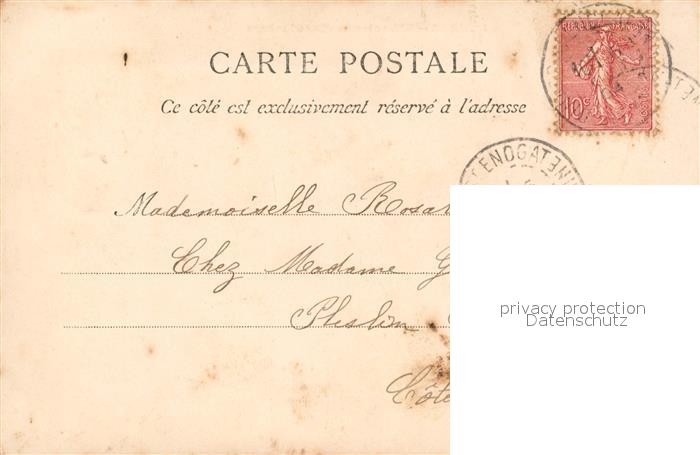 CARTE POSTALE
Ce côté est exclusivement réservé à l'adresse
10c
ENOGAT
Mademoiselle Rosa
Chez Madame G
Pleslin
Côte
privacy protection
Datenschutz